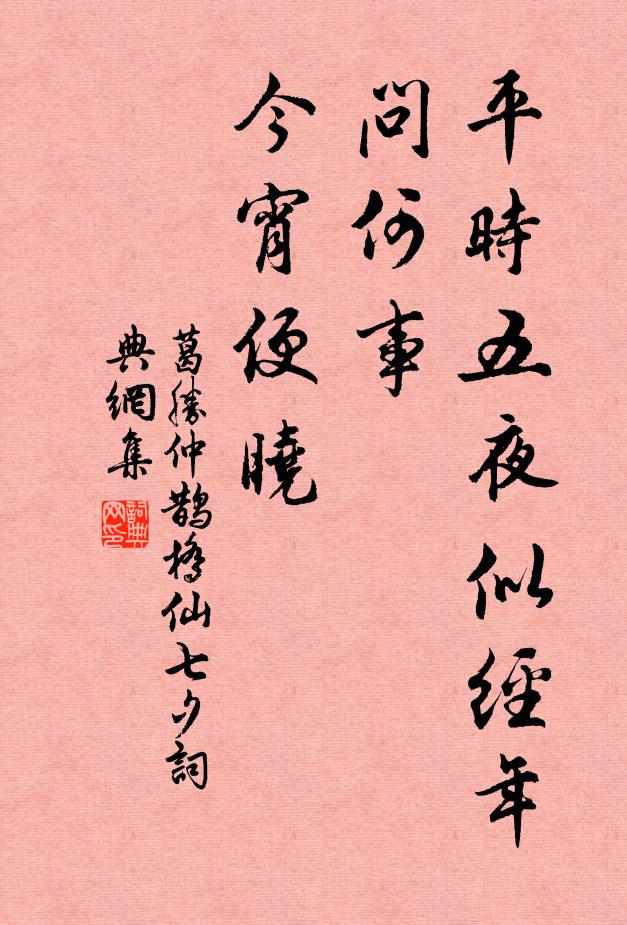 平時五夜似經年
問何事
今宵便曉
葛勝仲鵲橋仙七夕詞
典網集
詞典網印